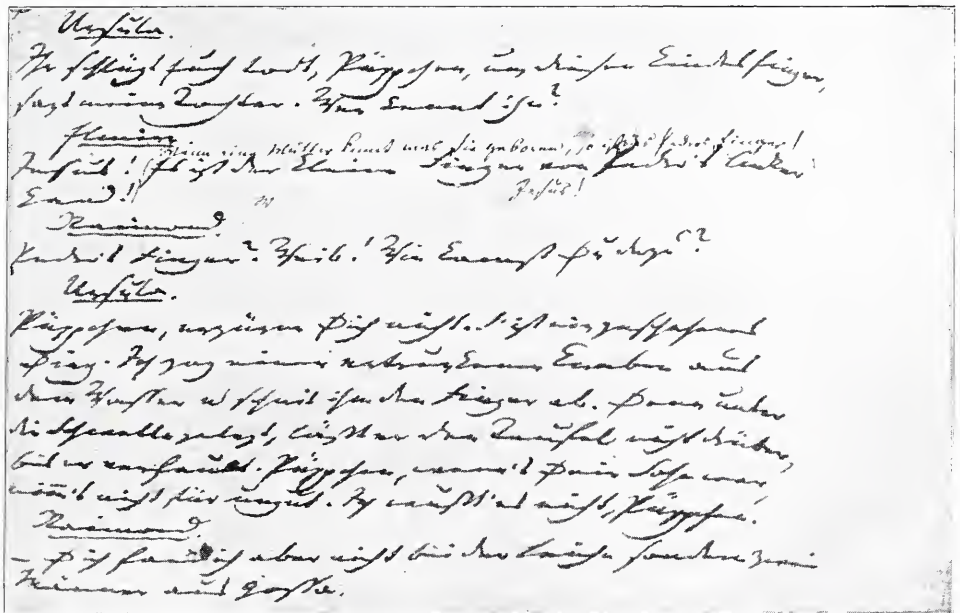 Ursula.
Ihr schlagt euch todt, Püppchen, um diesen Kindesfinger,
sagt meine Tochter. Wer kennt ihn?
Elmire
Wenn eine Mutter kennt was sie geboren, so ist es Pedros Finger!
Jesus! Es ist der kleine Finger von Peder's linker
Jesus!
Hand!
Raimond.
Peders Finger? Weib! Wie kommst Du dazu?
Ursula.
Püppchen, erzürne Dich nicht. 's ist ein geschehenes
Ding. Ich zog einen ertrunkenen Knaben aus
dem Wasser u schnit ihm den Finger ab. Denn unter
die Schwelle gelegt, läßt er den Teufel nicht drüber,
bis er verfault. Püppchen, wenn's Dein Sohn war,
nim̄'s nicht für ungut. Ich wußt' es nicht, Püppchen.
Raimond.
– Dich fand ich aber nicht bei der Leiche sondern zwei
Männer aus Gossa.